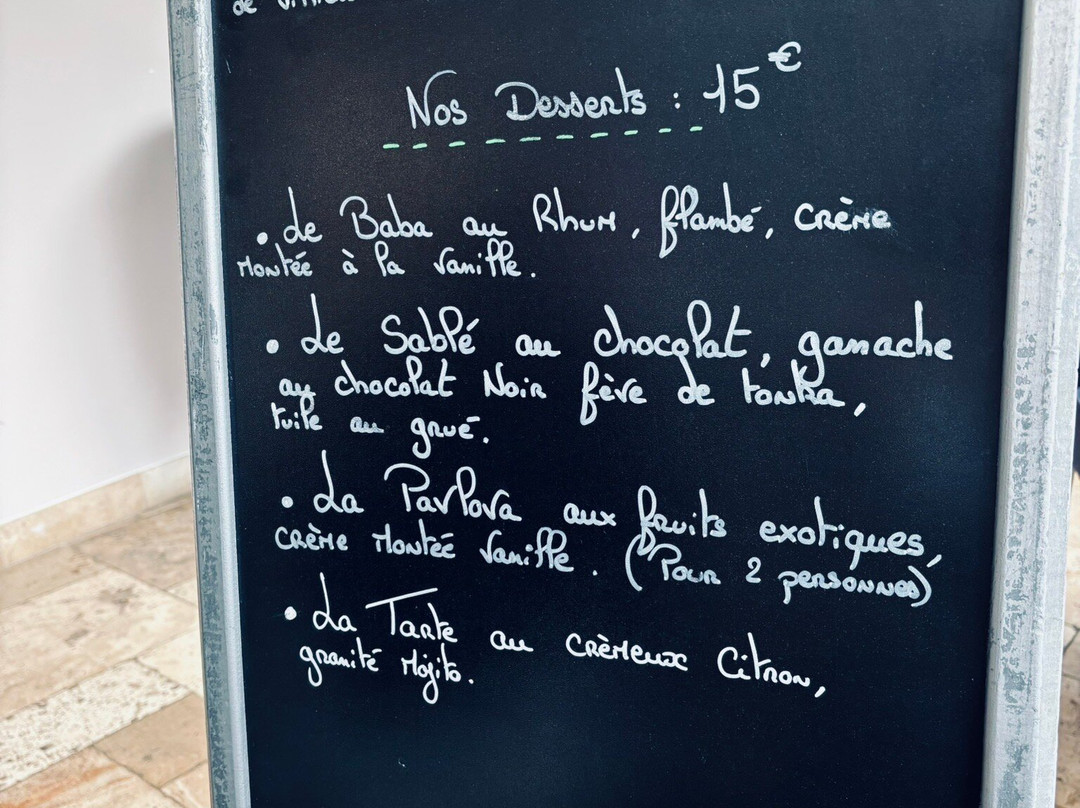 de
Nos Desserts : 15€
• Le Baba au Rhum, flambé, crème
montée à la vanille.
• Le Sablé au chocolat, ganache
au chocolat Noir fève de tonka,
tuile au grué.
• La Pavlova aux fruits exotiques,
crème montée vanille. (Pour 2 personnes)
• La Tarte au crèmeux Citron,
granité Mojito.